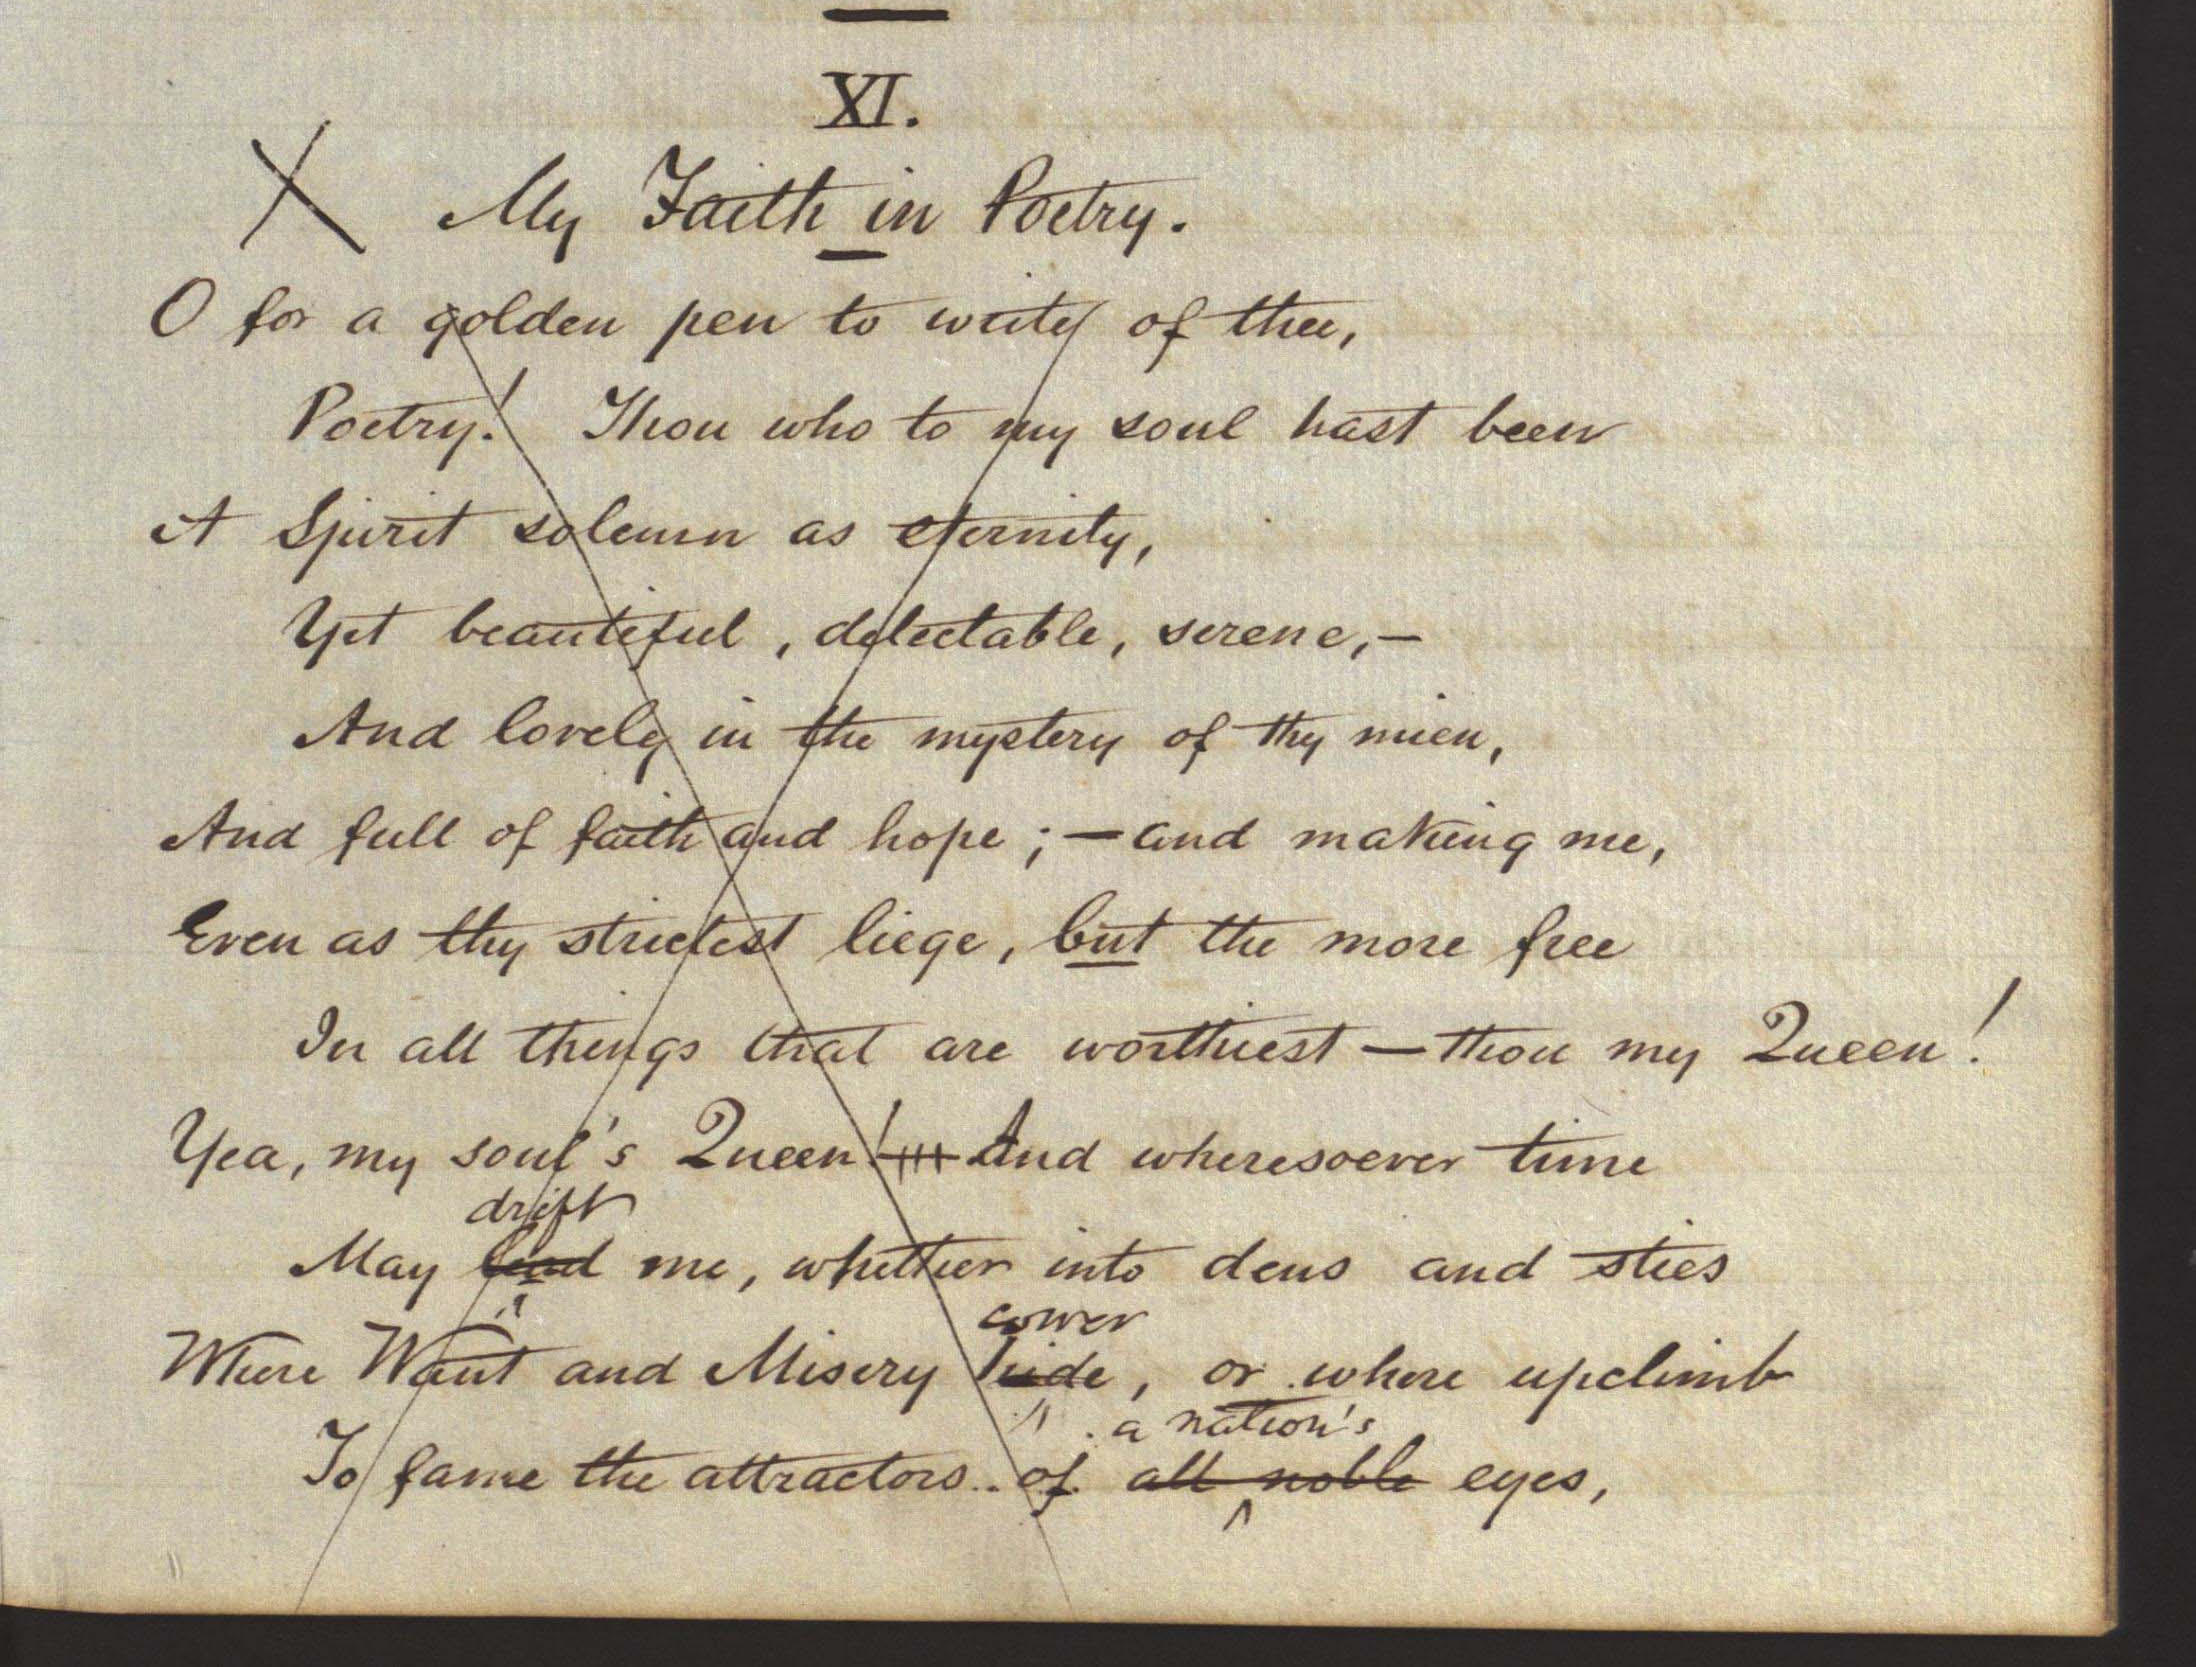 XI.
My Faith in Poetry.
O for a golden pen to write of thee,
Poetry! Thou who to my soul hast been
A Spirit solemn as eternity,
Yet beautiful, delectable, serene,—
And lovely in the mystery of thy mien,
And full of faith and hope;—and making me,
Even as thy strictest liege, but the more free
In all things that are worthiest—thou my Queen!
Yea, my soul's Queen!—And wheresoever time
drift
May lead me, whether into dens and sties
cower
Where Want and Misery hide, or where upclimb
a nation's
To fame the attractors of all noble eyes,